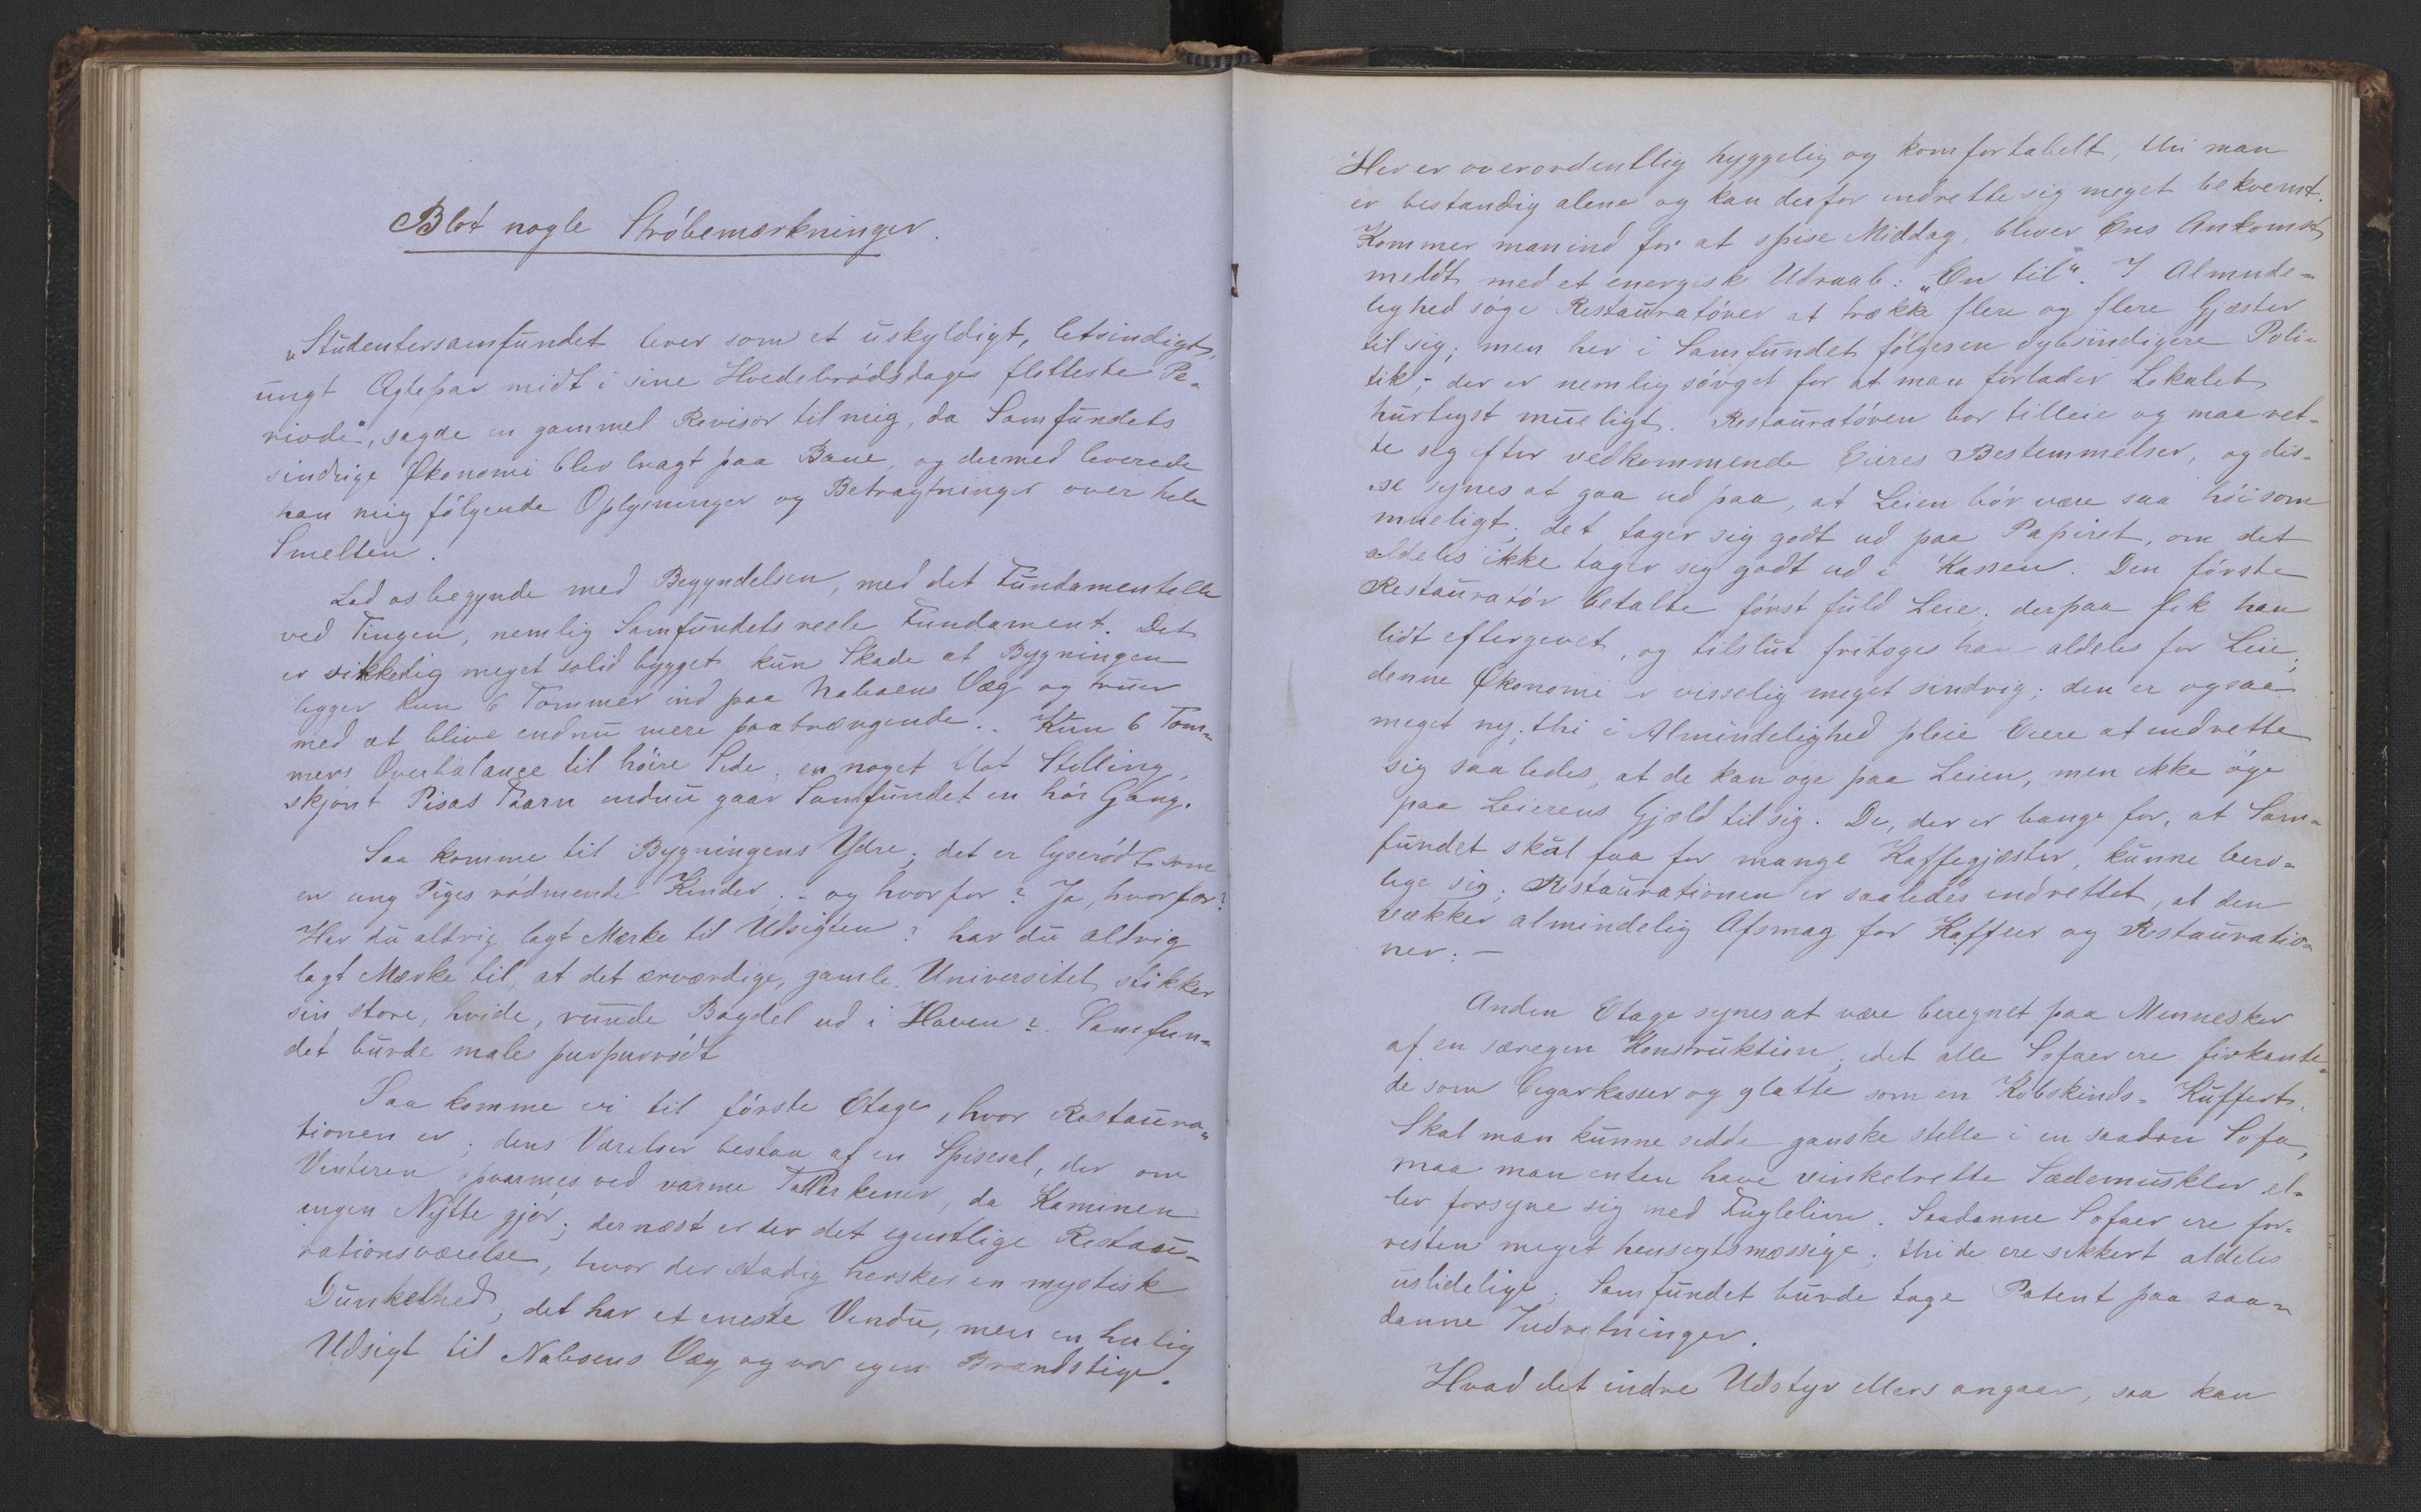 Blot nogle Strøbemærkninger.
„Studentersamfundet lever som et uskyldigt, letsindigt,
ungt Ægtepar midt i sine Hvedebrødsdages flotteste Pe-
riode", sagde en gammel Revisor til mig, da Samfundets
sindrige Økonomi blev bragt paa Bane, og dermed leverede
han mig følgende Oplysninger og Betragtninger over hele
Smelten.
Lad os begynde med Begyndelsen, med det Fundamentelle
ved Tingen, nemlig Samfundets reele Fundament. Det
er sikkerlig meget solid bygget kun Skade at Bygningen
ligger kun 6 Tommer ind paa Naboens Væg og truer
med at blive endnu mere paatrængende. Kun 6 Tom-
mers Overbalance til høire Side, en noget flot Stilling,
skjønt Pisas Taarn endnu gaar Samfundet en høi Gang.
Saa komme til Bygningens Ydre; det er lyserødt som
en ung Piges rødmende Kinder. - og hvorfor? Ja, hvorfor?
Har du aldrig lagt Mærke til Udsigten? har du aldrig
lagt Mærke til, at det ærværdige, gamle Universitet stikker
sin store, hvide, runde Bagdel ud i Haven? Samfun-
det burde males purpurrødt
Saa komme vi til første Etage, hvor Restaura-
tionen er; dens Værelser bestaa af en Spisesal, der om
Vinteren opvarmes ved varme Tallerkener, da Kaminen
ingen Nytte gjør; dernæst er der det egentlige Restau-
rationsværelse, hvor der stadig hersker en mystisk
Dunkelhed; det har et eneste Vindu, men en herlig
Udsigt til Naboens Væg og vor egen Brandstige.
Her er overordentlig hyggelig og komfortabelt, thi man
er bestandig alene og kan derfor indrette sig meget bekvemt.
Kommer man ind for at spise Middag, bliver Ens Ankomst
meldt med et energisk Udraab: „En til". I Alminde-
lighed søge Restauratører at trække flere og flere Gjæster
til sig; men her i Samfundet følges en dybsindigere Poli-
tik; der er nemlig sørget for at man forlader Lokalet
hurtigst mueligt. Restauratøren bor tilleie og maa ret-
te sig efter vedkommende Eieres Bestemmelser, og dis-
se synes at gaa ud paa, at Leien bør være saa høi som
mueligt; det tager sig godt ud paa Papiret, om det
aldeles ikke tager sig godt ud i Kassen. Den første
Restauratør betalte først fuld Leie; derpaa fik han
lidt eftergivet, og tilslut fritoges han aldeles for Leie;
denne Økonomi er visselig meget sindrig; den er ogsaa
meget ny; thi i Almindelighed pleie Eiere at indrette
sig saaledes, at de kan øge paa Leien, men ikke øge
paa Leierens Gjæld til sig. De, der er bange for, at Sam-
fundet skal faa for mange Kaffegjæster, kunne bero-
lige sig; Restaurationen er saaledes indrettet, at den
vækker almindelig Afsmag for Kaffeer og Restauratio-
ner. —
Anden Etage synes at være beregnet paa Mennesker
af en særegen Konstruktion; idet alle Sofaer ere firkante-
de som Cigarkasser og glatte som en Kobskinds-Kuffert.
Skal man kunne sidde ganske stille i en saadan Sofa,
maa man enten have vinkelrette Sædemuskler el-
ler forsyne sig med Fuglelim. Saadanne Sofaer ere for-
resten meget hensigtsmæssige; thi de ere sikkert aldeles
uslidelige; Samfundet burde tage Patent paa saa-
danne Indretninger.
Hvad det indre Udstyr ellers angaar, saa kan